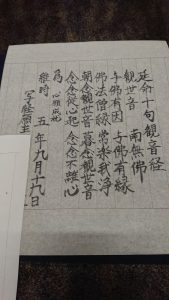 延命十句観音経
観世音　南無佛
与佛有因　与佛有縁
佛法僧縁　常楽我浄
朝念観世音　暮念観世音
念念従心起　念念不離心
為　心願成就
維時　五年九月十九日
写経願主